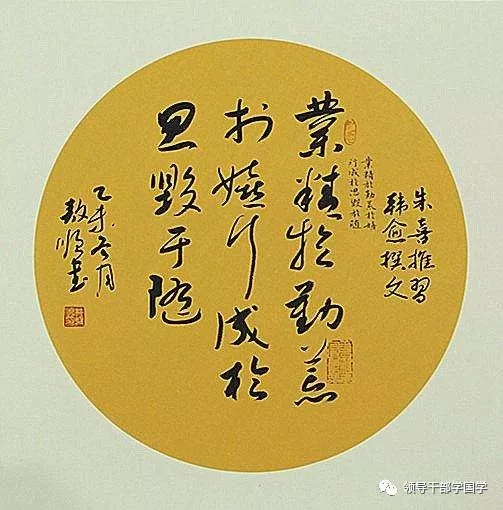 朱喜推習
韩愈撰文
業精於勤荒於嬉
行成於思毀於隨
業精於勤荒
於嬉行成於
思毀于隨
乙未冬月
書
领导干部学国学